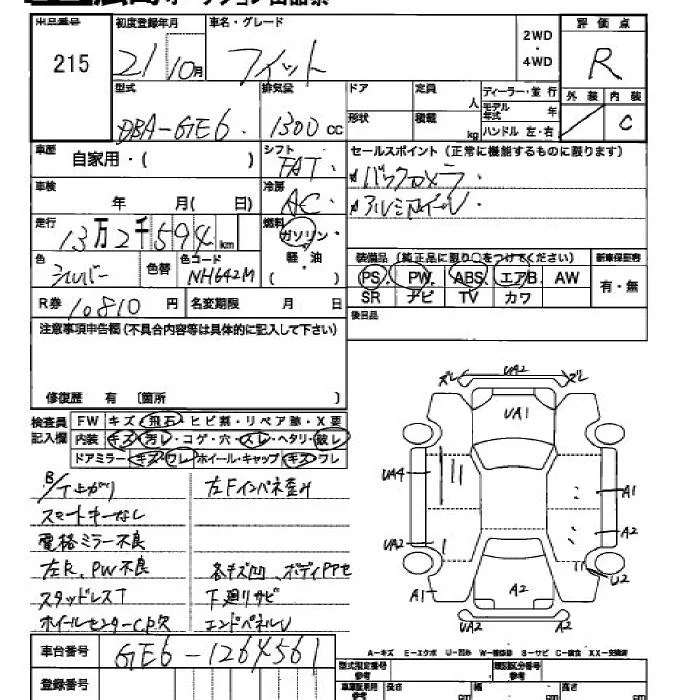 出品番号 初度登録年月 車名・グレード 評価点
215 21 10月 フィット 2WD・4WD R
型式 排気量 ドア 定員 人 ディーラー・並行 外装 内装
DBA-GE6 1300 cc 形状 積載 kg モデル年式 年 ハンドル 左・右 C
車歴 自家用・( ) シフト FAT セールスポイント(正常に機能するものに限ります)
車検 年 月( 日) 冷房 AC バックカメラ
アルミホイール
走行 13万2千594 km 燃料 ガソリン・軽・油 ( )
色 シルバー 色替 色コード NH642M
装備品(純正品に限り○をつけてください) 新車保証書
PS PW ABS エアB AW 有・無
SR ナビ TV カワ
R券 10810 円 名変期限 月 日 後日品
注意事項申告欄(不具合内容等は具体的に記入して下さい)
修復歴 有 〔箇所 〕
検査員記入欄 FW キズ・飛石・ヒビ割・リペア跡・X要
内装 キズ・汚レ・コゲ・穴・スレ・ヘタリ・破レ
ドアミラー キズ・ワレ ホイール・キャップ キズ・ワレ
B/T上がり 左Fインパネ歪み
スマートキーなし
電格ミラー不良
左R、PW不良 各キズ凹、ボディアセ
スタッドレスT 下廻りサビ
ホイールセンターCP欠 エンドパネルU
ズレ UA2 ズレ
UA1
UA4 A1
UA2 A2
A1 A2 U2
UA2 A2
A-キズ E-エクボ U-凹み W-補修跡 S-サビ C-腐食 XX-交換済
車台番号 GE6-1264561
型式指定番号 参考 類別区分番号 参考
登録番号 長さ cm 幅 cm 高さ cm